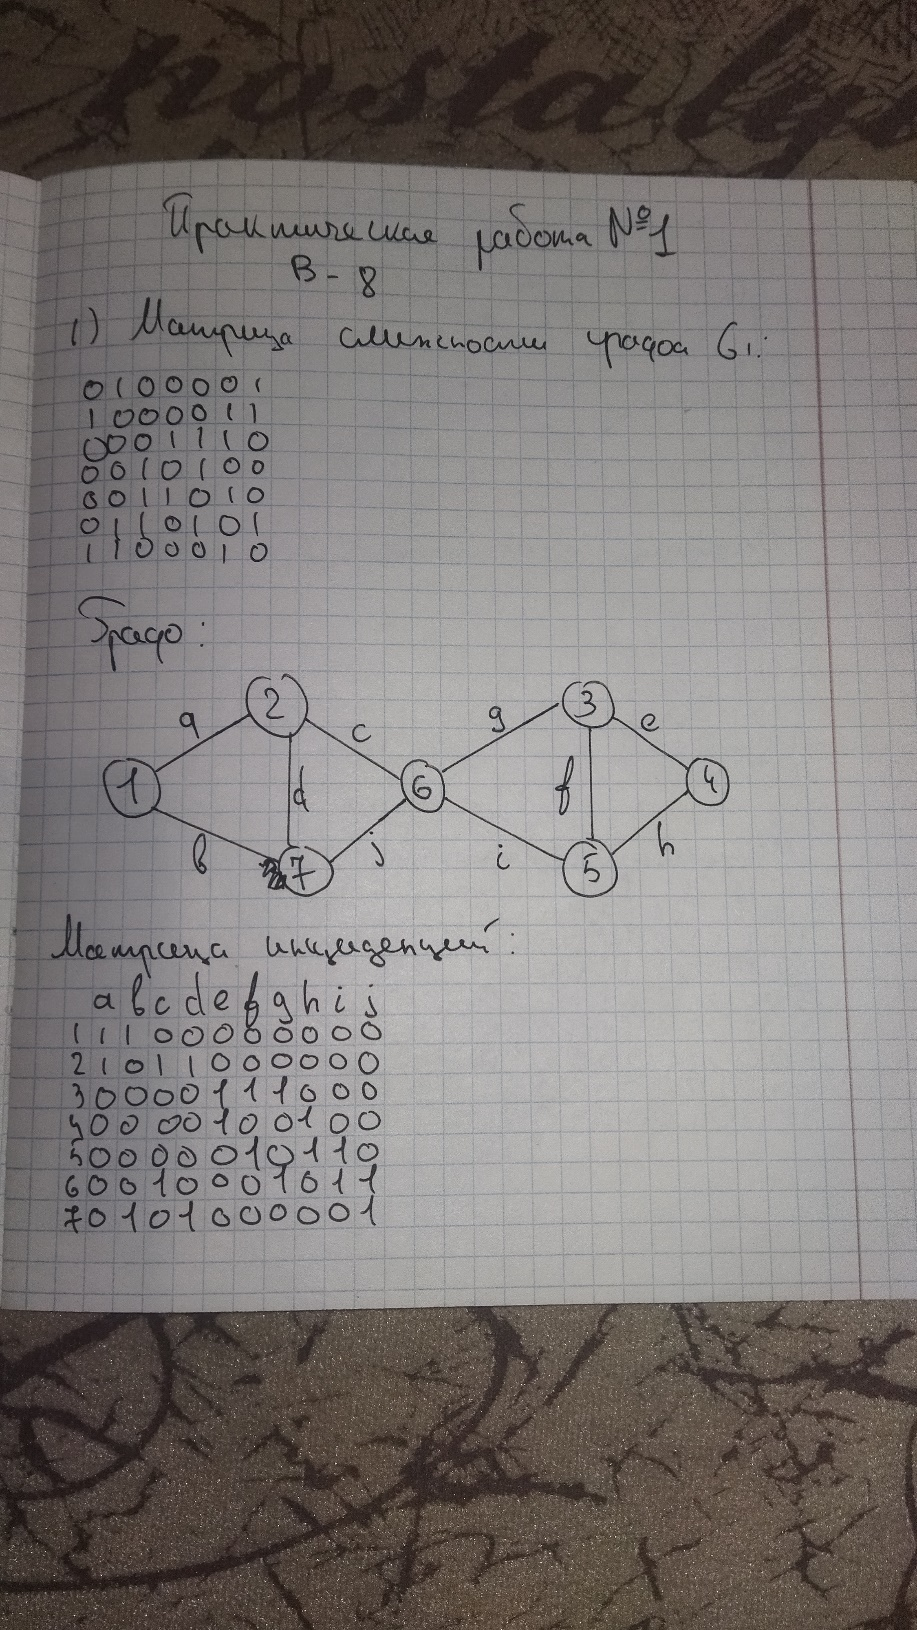 nostalg
Практическая работа №1
В - 8
1) Матрица смежности графа G1:
0 1 0 0 0 0 1
1 0 0 0 0 1 1
0 0 0 1 1 1 0
0 0 1 0 1 0 0
0 0 1 1 0 1 0
0 1 1 0 1 0 1
1 1 0 0 0 1 0
Граф:
2 3
a c g e
1 d 6 f 4
b j i h
7 5
Матрица инциденций:
a b c d e f g h i j
1 1 1 0 0 0 0 0 0 0 0
2 1 0 1 1 0 0 0 0 0 0
3 0 0 0 0 1 1 1 0 0 0
4 0 0 0 0 1 0 0 1 0 0
5 0 0 0 0 0 1 0 1 1 0
6 0 0 1 0 0 0 1 0 1 1
7 0 1 0 1 0 0 0 0 0 1